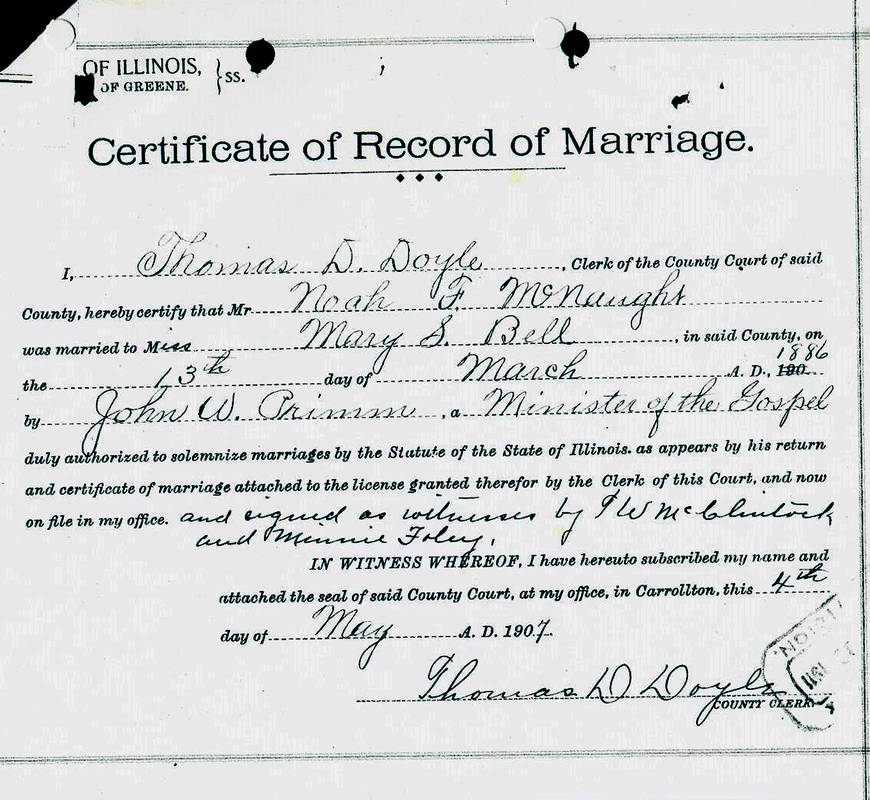 OF ILLINOIS,
OF GREENE. } SS.
Certificate of Record of Marriage.
I, Thomas D. Doyle, Clerk of the County Court of said
County, hereby certify that Mr Noah F. McNaught
was married to Miss Mary S. Bell, in said County, on
the 13th day of March A. D., 190 1886
by John W. Primm, a Minister of the Gospel
duly authorized to solemnize marriages by the Statute of the State of Illinois. as appears by his return
and certificate of marriage attached to the license granted therefor by the Clerk of this Court, and now
on file in my office. and signed as witnesses by T W McClintock
and Minnie Foley.
IN WITNESS WHEREOF, I have hereto subscribed my name and
attached the seal of said County Court, at my office, in Carrollton, this 4th
day of May A. D. 1907.
Thomas D Doyle
COUNTY CLERK